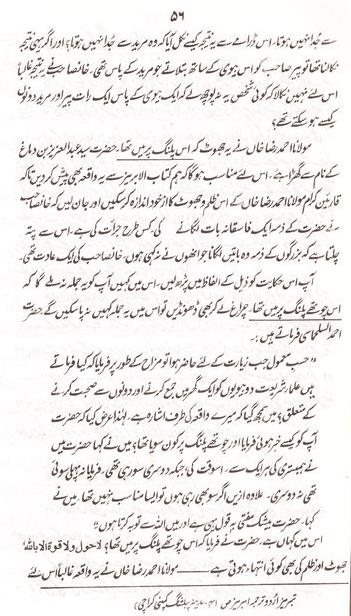 ۵۶
سے جدا نہیں ہوتا، اس ڈرامے سے یہ نتیجہ کیسے نکل آیا کہ وہ مرید سے جدا نہیں ہوتا؟ اور اگر یہی نتیجہ
نکالنا تھا تو پیر صاحب کو اس بیوی کے ساتھ بتلاتے جو مرید کے پاس تھی۔ خانصاحب نے یہ نتیجہ غالباً
اس لئے نہیں نکالا کہ کوئی شخص یہ نہ پوچھ لے کہ ایک بیوی کے پاس ایک رات پیر اور مرید دونوں
کیسے ہو سکتے تھے؟
مولانا احمد رضا خاں نے یہ جھوٹ کہ اس پلنگ پر میں تھا۔ حضرت سید عبدالعزیز بن دباغ
کے نام سے گھڑا ہے۔ اس لئے مناسب ہو گا کہ ہم کتاب الابریز سے یہ واقعہ بھی پیش کر دیں تاکہ
قارئین کرام مولانا احمد رضا خاں کے اس ظلم و جھوٹ کا از خود اندازہ کر سکیں اور جان لیں کہ خانصاحب
نے حضرت کے ذمہ ایک فاسقانہ بات لگانے کی کس طرح جرأت کی ہے۔ اس سے پتہ
چلتا ہے کہ بزرگوں کے ذمہ وہ باتیں لگانا جو انھوں نے نہ کہی ہوں۔ خانصاحب کی ایک عادت تھی۔
آپ اس حکایت کو ذیل کے الفاظ میں پڑھ لیں۔ اس میں کہیں آپ کو یہ جملہ نہ ملے گا کہ
اس چوتھے پلنگ پر میں تھا۔ چراغ لے کر بھی ڈھونڈیں تو اس میں یہ جملہ کہیں نہ پا سکیں گے حضرت
احمد السلجماسی فرماتے ہیں :۔
" حسب معمول جب زیارت کے لئے حاضر ہوا تو مزاح کے طور پر فرمایا کہ کیا فرماتے
ہیں علماء شریعت دو بیویوں کو ایک گھر میں جمع کرنے اور دونوں سے صحبت کرنے
کے متعلق؟ میں سمجھ گیا کہ میرے واقعہ کی طرف اشارہ ہے۔ لہٰذا عرض کیا کہ حضرت
آپ کو کیسے خبر ہوئی فرمایا اور چوتھے پلنگ پر کون سویا تھا؟ میں نے کہا حضرت میں
نے ہمبستری کی ہر ایک سے۔ اسوقت کی جبکہ دوسری سو رہی تھی۔ فرمایا نہ پہلی سوئی
تھی نہ دوسری۔ علاوہ ازیں اگر سو بھی رہی ہوں تو ایسا مناسب نہیں تھا۔ میں نے
کہا۔ حضرت بیشک مفتی بہ قول یہی ہے اور میں اللہ سے توبہ کرتا ہوں"
اس میں کہاں ہے۔ حضرت نے فرمایا کہ اس چوتھے پلنگ پر میں تھا؟ لاحول ولا قوۃ الا باللہ،
جھوٹ اور ظلم کی بھی کوئی انتہاء ہوتی ہے ـــــ مولانا احمد رضا خاں نے یہ واقعہ غالباً اس لئے
اردو ترجمہ ابریز ص